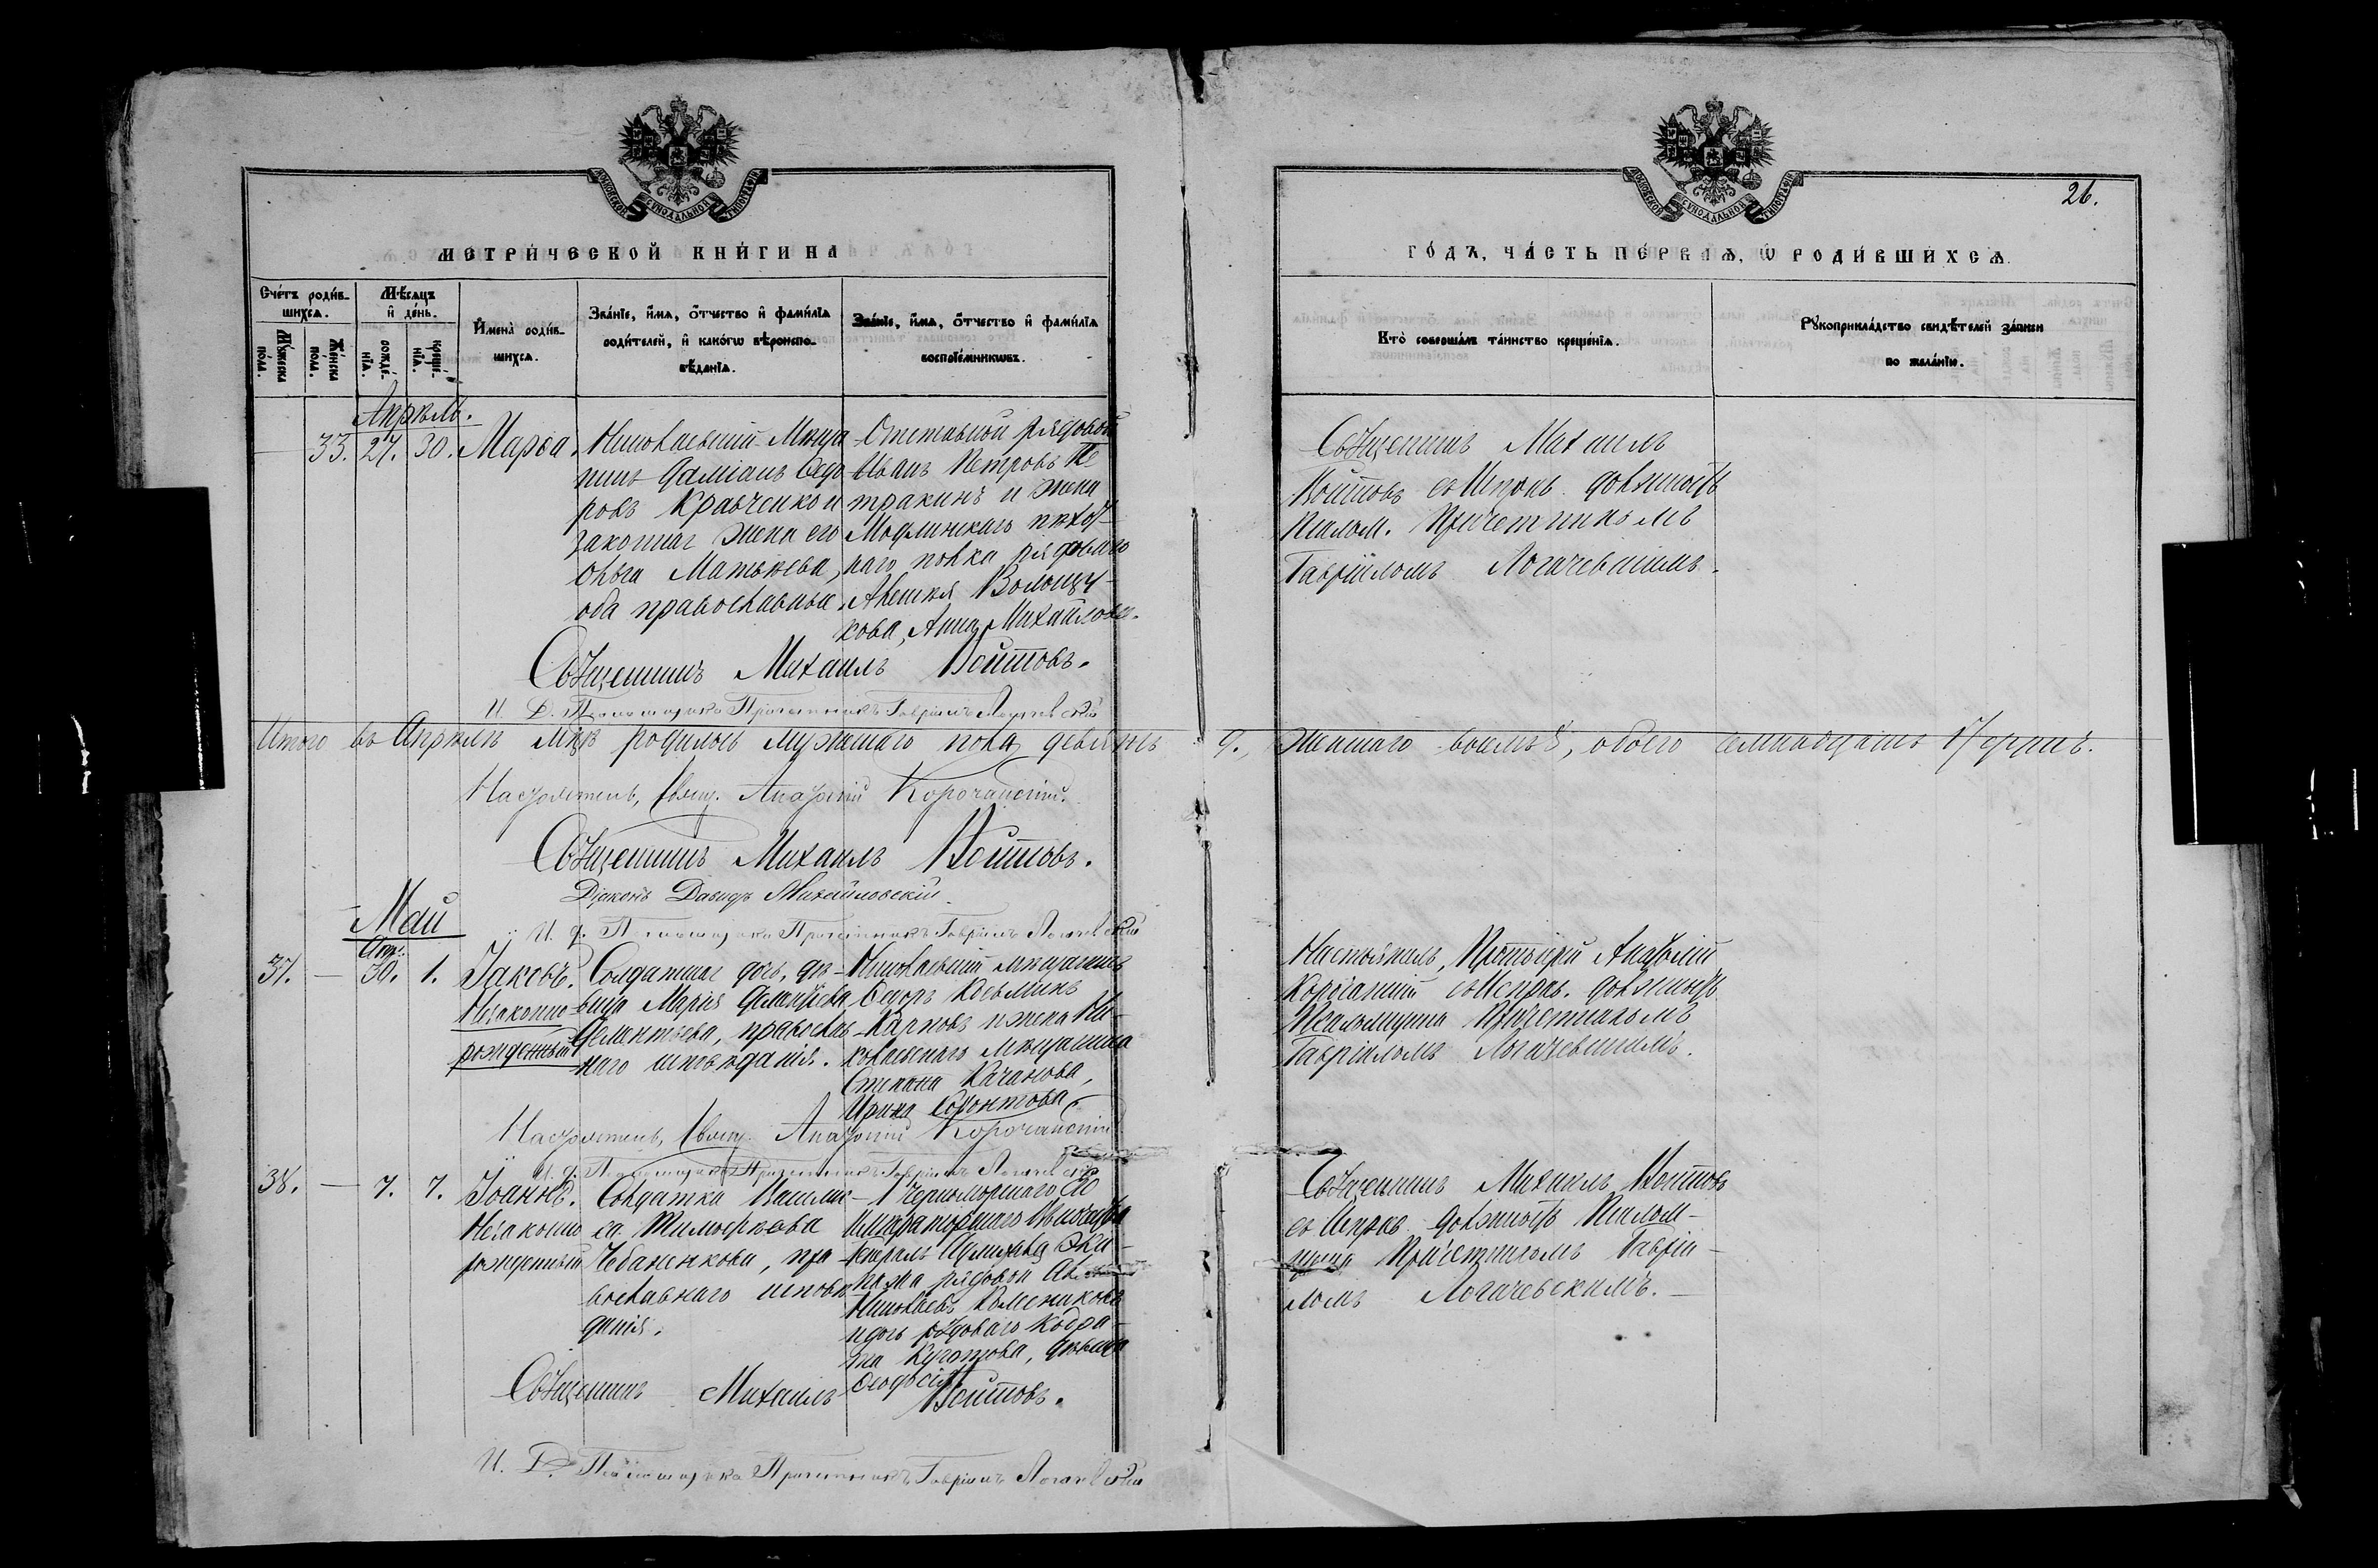 МОСКОВСКОЙ СѴНОДАЛЬНОЙ ТИПОГРАФІИ
МЕТРИ́ЧЕСКОЙ КНИ́ГИ НА
Сче́тъ роди́вшихсѧ.
Мѣ́сѧцъ и҆ де́нь.
И҆мена̀ роди́вшихсѧ.
Зва́нїе, и҆́мѧ, ѻ҆́тчество и҆ фами́лїѧ роди́телей, и҆ како́гѡ вѣроисповѣ́данїѧ.
Зва́нїе, и҆́мѧ, ѻ҆́тчество и҆ фами́лїѧ воспрїе́мникѡвъ.
Мꙋ́жеска по́ла.
Же́нска по́ла.
рожде́нїѧ.
креще́нїѧ.
Апрѣль.
33. 27. 30. Марѳа.
Николаевскій Мѣща
нинъ Даміанъ Ѳедо
ровъ Кравченко и
законная жена его
Ольга Матвѣева,
оба православные.
Отставной рядовой
Иванъ Петровъ Пе
тракинъ и жена
Модлинскаго пѣхот-
наго полка рядоваго
Алексѣя Волощу-
кова, Анна Михайлова.
Священникъ Михаилъ Войтовъ.
И. Д. Псаломщика Причетникъ Гавріилъ Логачевскій
Итого въ Апрѣлѣ мцѣ родилось мужескаго пола девять
Настоятель, Свящ. Анатолій Корочанскій.
Священникъ Михаилъ Войтовъ.
Діаконъ Давидъ Михайловскій.
Май
И. д. Псаломщика Причетникъ Гавріилъ Логачевскій
Апр.
37. — 30. 1. Іаковъ.
Незаконно
рожденный
Солдатская дочь, дѣ-
вица Марія
Дементьева, православ
наго исповѣданія.
Николаевскій мѣщанинъ
Ѳедоръ Козьминъ
Карповъ и жена Ни-
колаевскаго мѣщанина
Степана Качанова,
Ирина
Настоятель, Свящ. Анатолій Корочанскій
И. д. Псаломщика Причетникъ Гавріилъ Логачевскій
38. — 7. 7. Іоаннъ.
Незаконно
рожденный
Солдатка Василис
са Тимоѳеева
Чебаненкова, пра
вославнаго исповѣ
данія.
1 Черноморскаго Его
Императорскаго Высочества
Генералъ Адмирала Эки-
пажа рядовой
Николаевъ Колесниковъ
и дочь рядоваго Кодра-
та, дѣвица
Ѳеодосія
Священникъ Михаилъ Войтовъ.
И. Д. Псаломщика Причетникъ Гавріилъ Логачевскій
МОСКОВСКОЙ СѴНОДАЛЬНОЙ ТИПОГРАФІИ
26.
ГО́ДЪ, ЧА́СТЬ ПЕ́РВАѦ, Ѡ҆ РОДИ́ВШИХСѦ.
Кто̀ соверша́лъ та́инство креще́нїѧ.
Рꙋкоприкла́дство свидѣ́телей за́писи по жела́нїю.
Священникъ Михаилъ
Войтовъ съ Испр. должность
Псалом. Причетникомъ
Гавріиломъ Логачевскимъ.
9., женскаго восемь 8, обоего семнадцать 17 душъ.
Настоятель, Протоіерей Анатолій
Корочанскій съ Исправ. должность
Псаломщика Причетникомъ
Гавріиломъ Логачевскимъ.
Священникъ Михаилъ Войтовъ
съ Исправ. должность Псалом-
щика Причетникомъ Гавріи-
ломъ Логачевскимъ. —